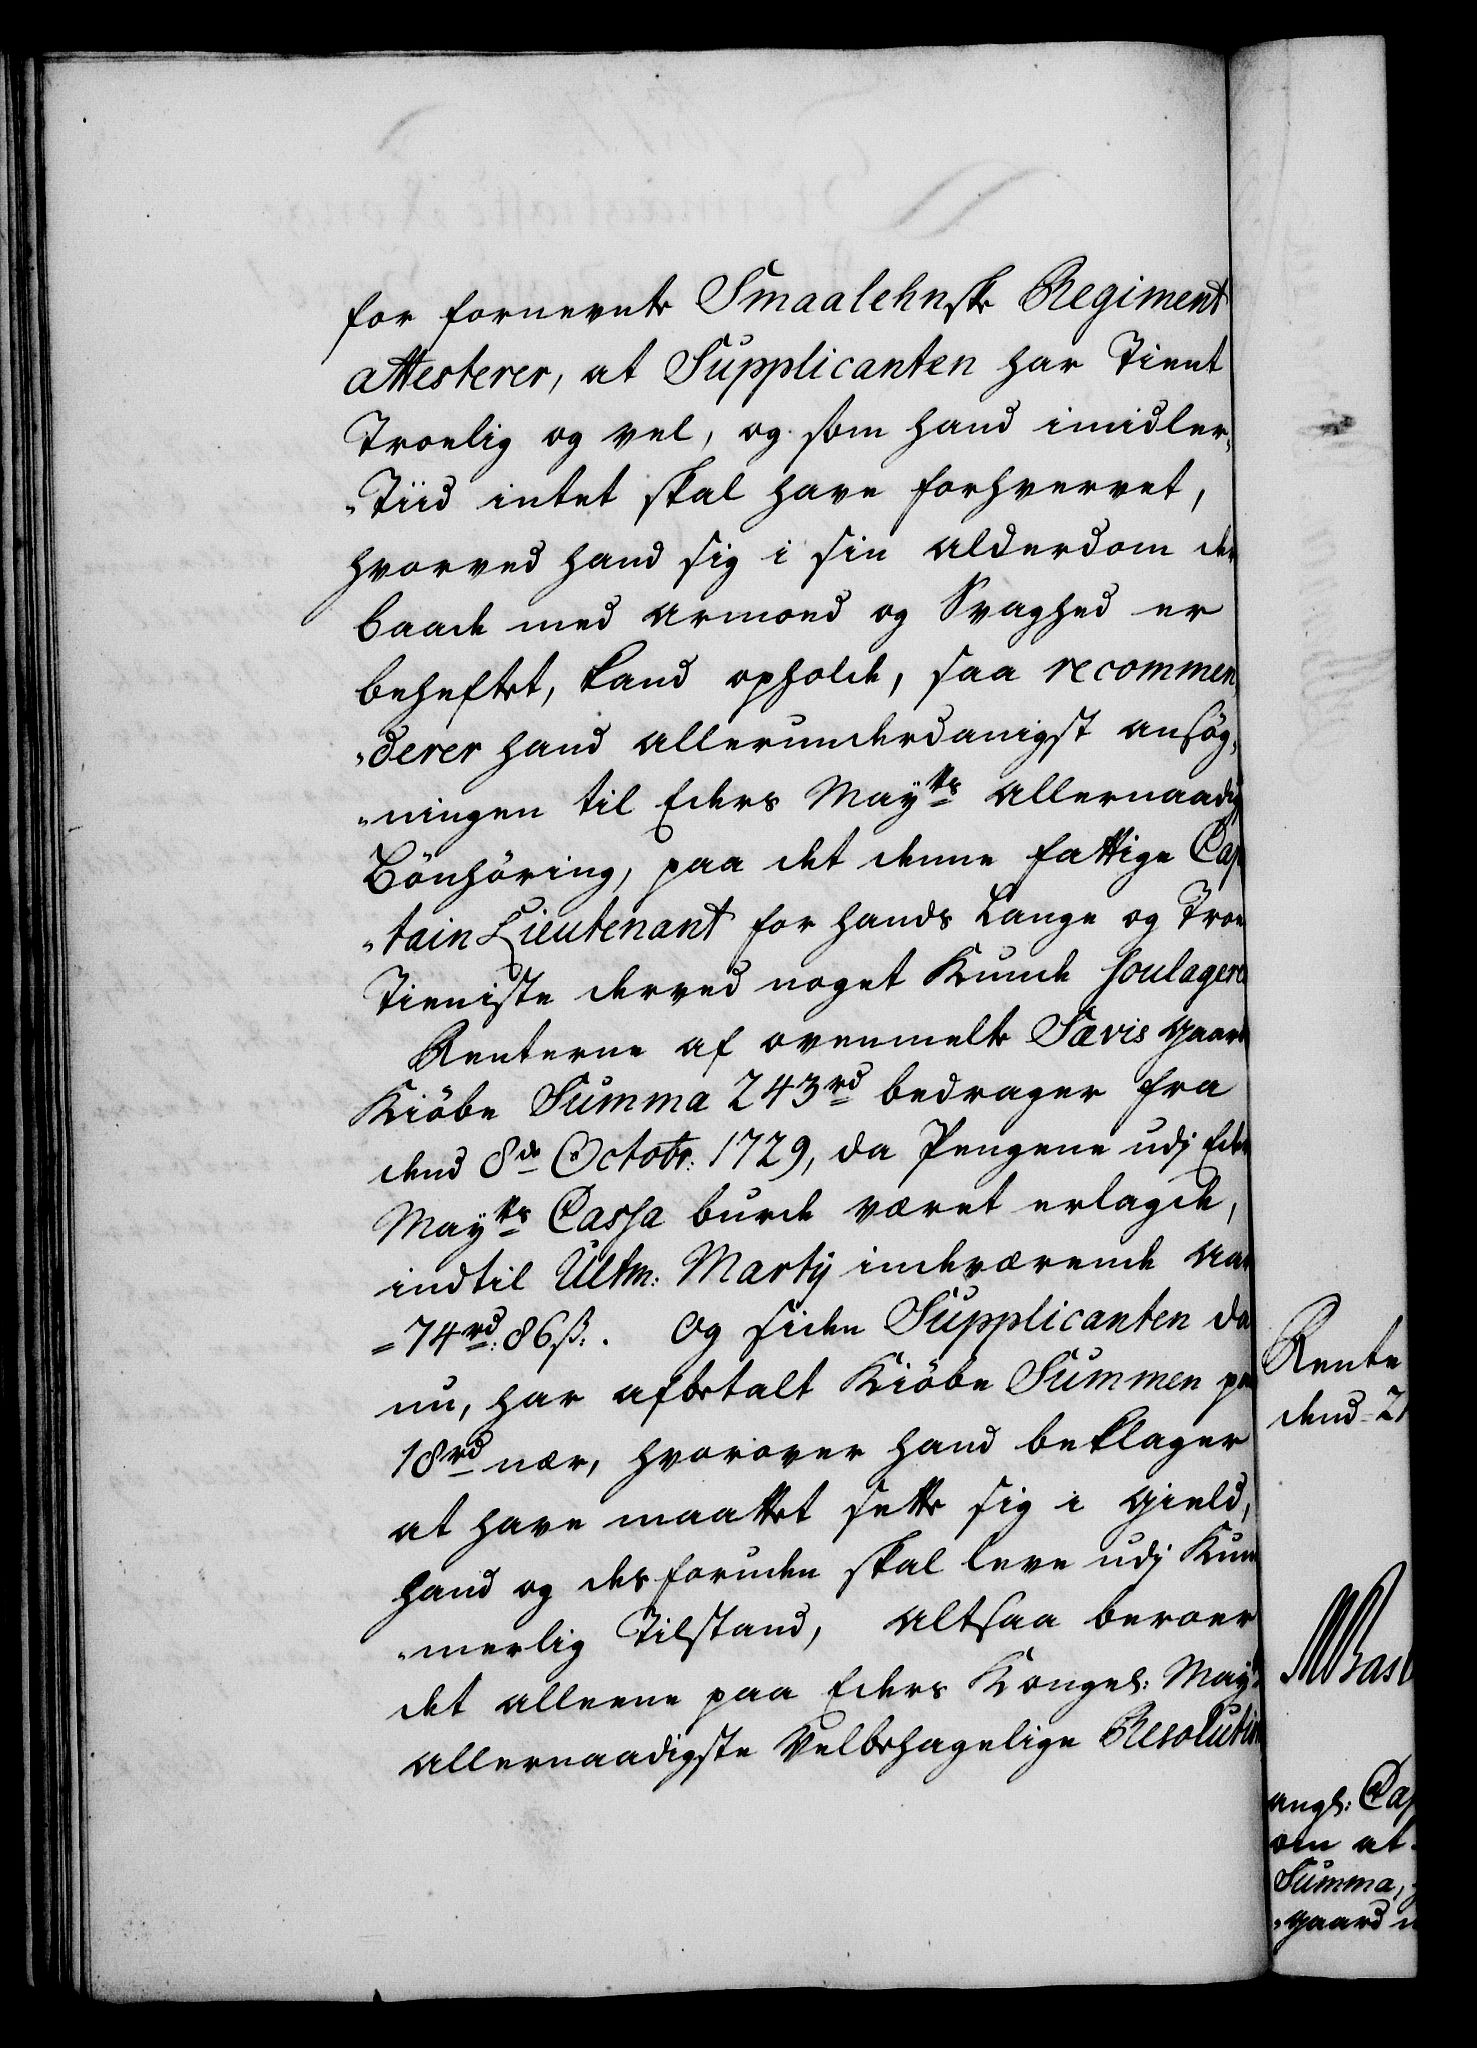 for fornevnte Smaalehnske Regiment
attesterer, at Supplicanten har Tient
Troelig og vel, og som hand imidler„
„Tiid intet skal have forhvervet,
hvorved hand sig i sin alderdom der
baade med armoed og Svaghed er
beheftet, kand opholde, saa recommen„
„derer hand allerunderdanigst ansøg„
„ningen til Eders Mayts allernaadigst
Bönhöring, paa det denne fattige Cap
„tain Lieutenant for hands Lange og Troe
Tieniste derved noget Kunde soulageres
Renterne af ovenmelte Sævis gaards
Kiöbe Summa 243 rd bedrager fra
dend 8de Octobr: 1729, da Pengene udj Eders
Mayts Cassa burde været erlagde,
indtil Ultm: Martij indeværende Aar
= 74 rd: 86 ß:. Og siden Supplicanten da
nu, har afbetalt Kiöbe Summen paa
18 rd nær, hvorover hand beklager
at have maattet sette sig i gield,
hand og desforuden skal leve udj Kum
„merlig Tilstand, altsaa beroer
det alleene paa Eders Kongel: Mayts
allernaadigste Velbehagelige Resolution
Rente
dend = 21
angl: Cap
om at
Summa,
„gaard